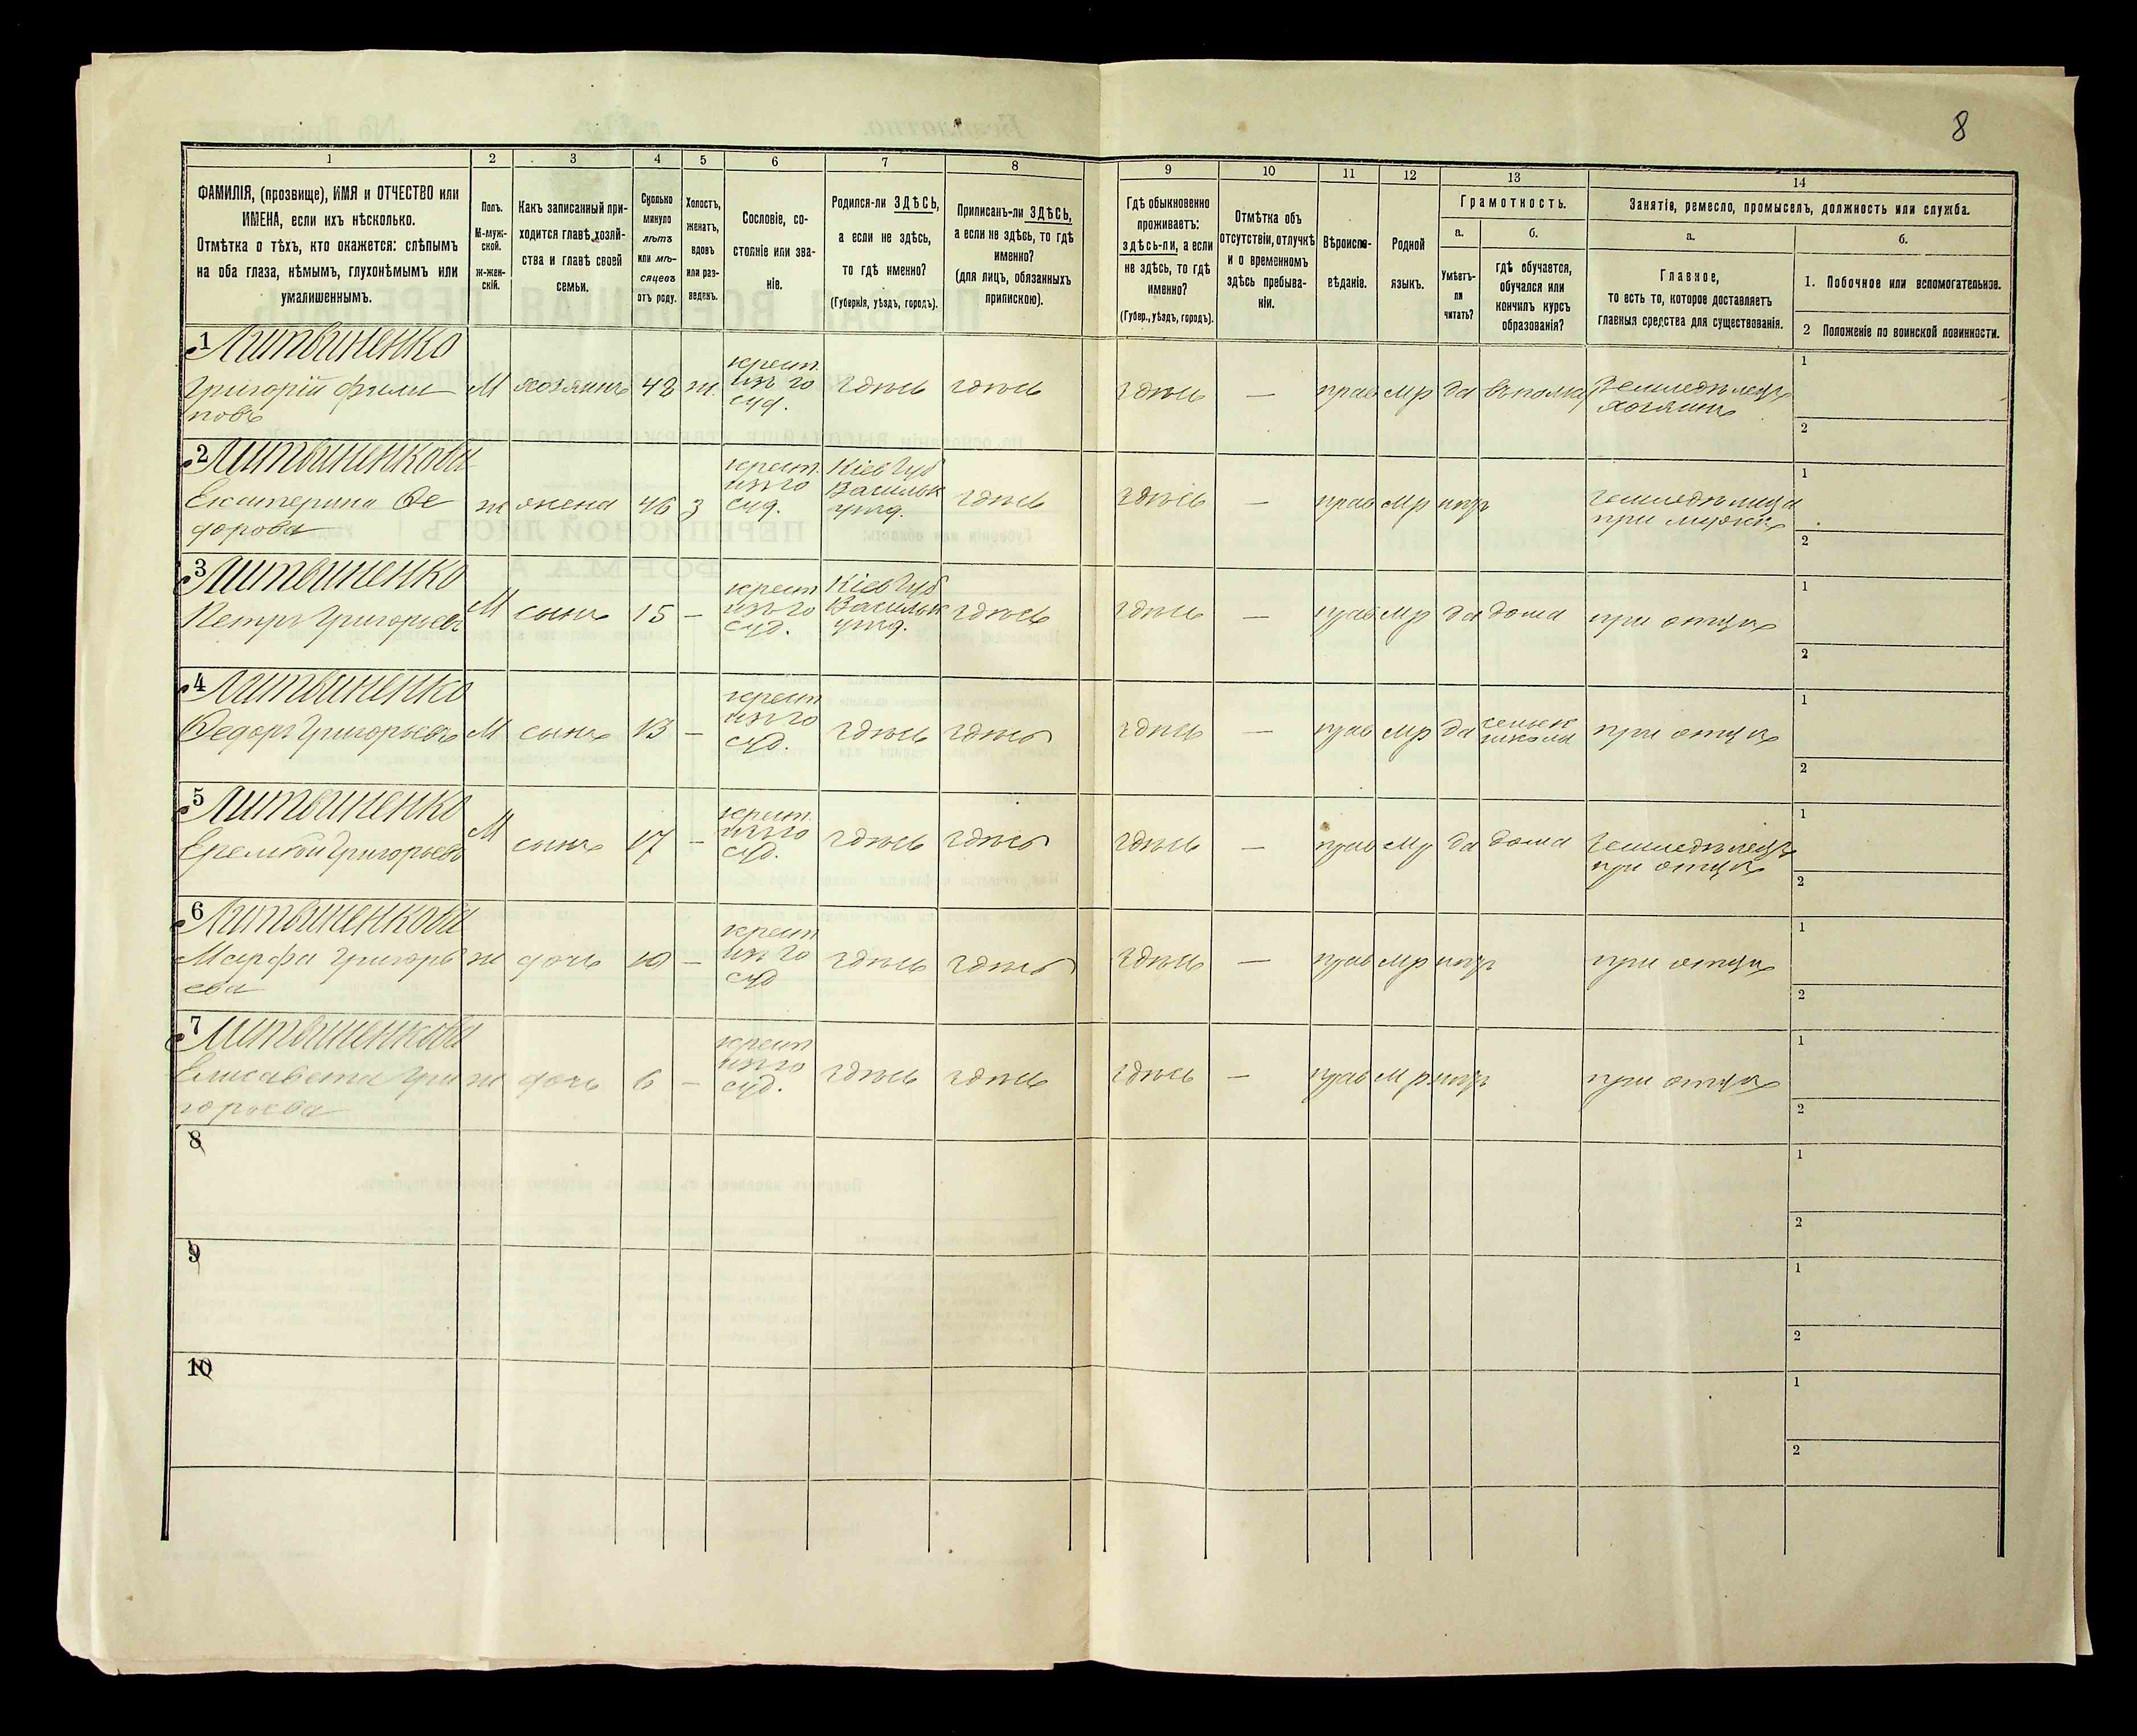 8
1
2
3
4
5
6
7
8
9
10
11
12
13
14
ФАМИЛІЯ, (прозвище), ИМЯ и ОТЧЕСТВО или
ИМЕНА, если ихъ нѣсколько.
Отмѣтка о тѣхъ, кто окажется: слѣпымъ
на оба глаза, нѣмымъ, глухонѣмымъ или
умалишеннымъ.
Полъ.
М-муж-
ской.
ж-жен-
скій.
Какъ записанный при-
ходится главѣ хозяй-
ства и главѣ своей
семьи.
Сколько
минуло
лѣтъ
или мѣ-
сяцевъ
отъ роду.
Холостъ,
женатъ,
вдовъ
или раз-
веденъ.
Сословіе, со-
стояніе или зва-
ніе.
Родился-ли ЗДѢСЬ,
а если не здѣсь,
то гдѣ именно?
(Губернія, уѣздъ, городъ).
Приписанъ-ли ЗДѢСЬ,
а если не здѣсь, то гдѣ
именно?
(для лицъ, обязанныхъ
припискою).
Гдѣ обыкновенно
проживаетъ:
здѣсь-ли, а если
не здѣсь, то гдѣ
именно?
(Губер., уѣздъ, городъ).
Отмѣтка объ
отсутствіи, отлучкѣ
и о временномъ
здѣсь пребыва-
ніи.
Вѣроиспо-
вѣданіе.
Родной
языкъ.
Грамотность.
а.
Умѣетъ-
ли
читать?
б.
гдѣ обучается,
обучался или
кончилъ курсъ
образованія?
Занятія, ремесло, промыселъ, должность или служба.
а.
Главное,
то есть то, которое доставляетъ
главныя средства для существованія.
б.
1. Побочное или вспомогательное.
2 Положеніе по воинской повинности.
1 Литвиненко
Григорій Фили
повъ
М хозяинъ 48 ж.
крест.
изъ го
суд.
здѣсь здѣсь здѣсь — прав мр да
Земледѣлецъ
хозяинъ
1
2
2 Литвиненкова
Екатерина Ѳе
дорова
ж жена 46 з
крест.
изъ го
суд.
Кіев Губ
Васильк
уѣзд.
здѣсь здѣсь — прав мр нѣтъ
земледѣлица
при мужѣ
1
2
3 Литвиненко
Петръ Григорьевъ
М сынъ 15 —
крест
изъ го
суд.
Кіев Губ
Васильк
уѣзд.
здѣсь здѣсь — прав мр да дома при отцѣ
1
2
4 Литвиненко
Ѳедоръ Григорьевъ
М сынъ 13 —
крест
изъ го
суд.
здѣсь здѣсь здѣсь — прав мр да
сельск
школы
при отцѣ
1
2
5 Литвиненко
Еремѣй Григорьевъ
М сынъ 17 —
крест.
изъ го
суд.
здѣсь здѣсь здѣсь — прав мр да дома
Земледѣлецъ
при отцѣ
1
2
6 Литвиненкова
Марфа Григорь
ева
ж дочь 10 —
крест
изъ го
суд
здѣсь здѣсь здѣсь — прав мр нѣтъ при отцѣ
1
2
7 Литвиненкова
Елисавета Гри
горьева
ж дочь 6 —
крест
изъ го
суд.
здѣсь здѣсь здѣсь — прав мр нѣтъ при отцѣ
1
2
8
1
2
9
1
2
10
1
2